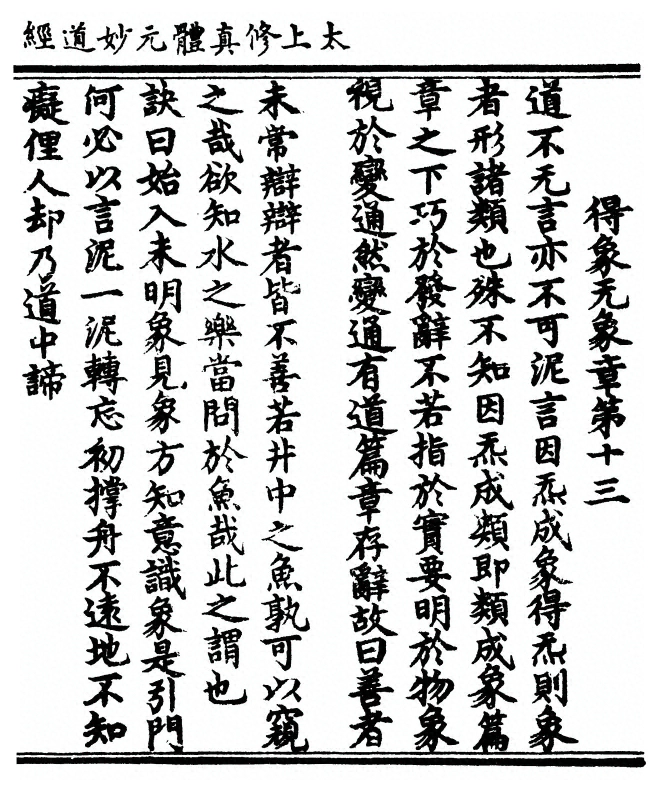 太上修真體元妙道經
得象无象章第十三
道不无言亦不可泥言因炁成象得炁則象
者形諸類也殊不知因炁成類即類成象篇
章之下巧於發辭不若指於實要明於物象
視於變通然變通有道篇章存辭故曰善者
未常辯辯者皆不善若井中之魚孰可以窺
之哉欲知水之樂當問於魚哉此之謂也
訣曰始入未明象見象方知意識象是引門
何必以言泥一泥轉忘初撑舟不遠地不知
癡俚人却乃道中諦